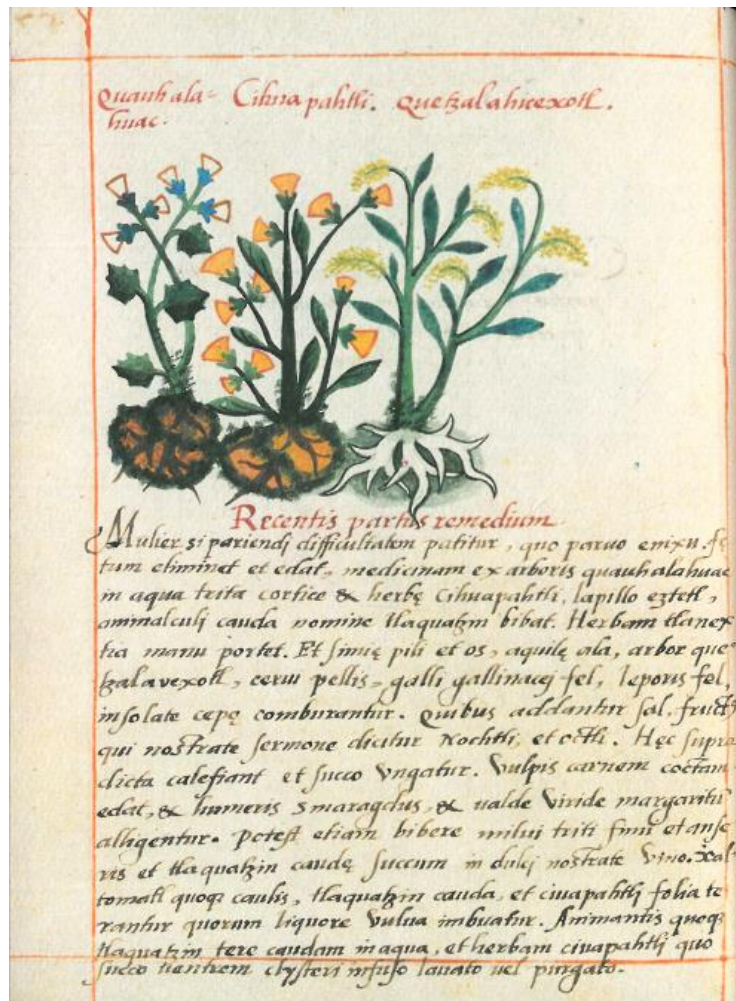 Quauhala= Cihuapahtli. Quetzalahuexotl.
huac.
Recentis partus remedium.
Mulier si pariendi difficultatem patitur, quo paruo enixu fę
tum eliminet et edat, medicinam ex arboris quauhalahuac
in aqua trita cortice & herbę Cihuapahtli, lapillo eztetl,
animalculi cauda nomine tlaquatzin bibat. Herbam tlanex
tia manu portet. Et simię pili et os, aquilę ala, arbor que
tzalavexotl, cerui pellis, galli gallinacej fel, leporis fel,
insolate cepę comburantur. Quibus addantur sal, fruct9
qui nostrate sermone dicitur Nochtli, et octli. Hęc supra
dicta calefiant et succo vngatur. Vulpis carnem coctam
edat, & humeris smaragdus, & valde viride margaritũ
alligentur. Potest etiam bibere milui triti fimũ et anse
ris et tlaquatzin caudę succum in dulcj nostrate vino. Xal-
tomatl quoq caulis, tlaquatzin cauda, et ciuapahtli folia te
rantur quorum liquore vulua imbuatur. Animantis quoq
tlaquatzin tere caudam in aqua, et herbam ciuapahtli quo
succo uentrem clysteri infuso lauato uel purgato.